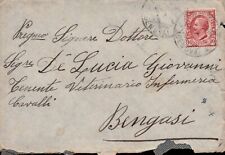 Pregmo Signore Dottore
Sigre De Lucia Giovanni
Tenente Veterinario Infermeria
Cavalli
Bengasi